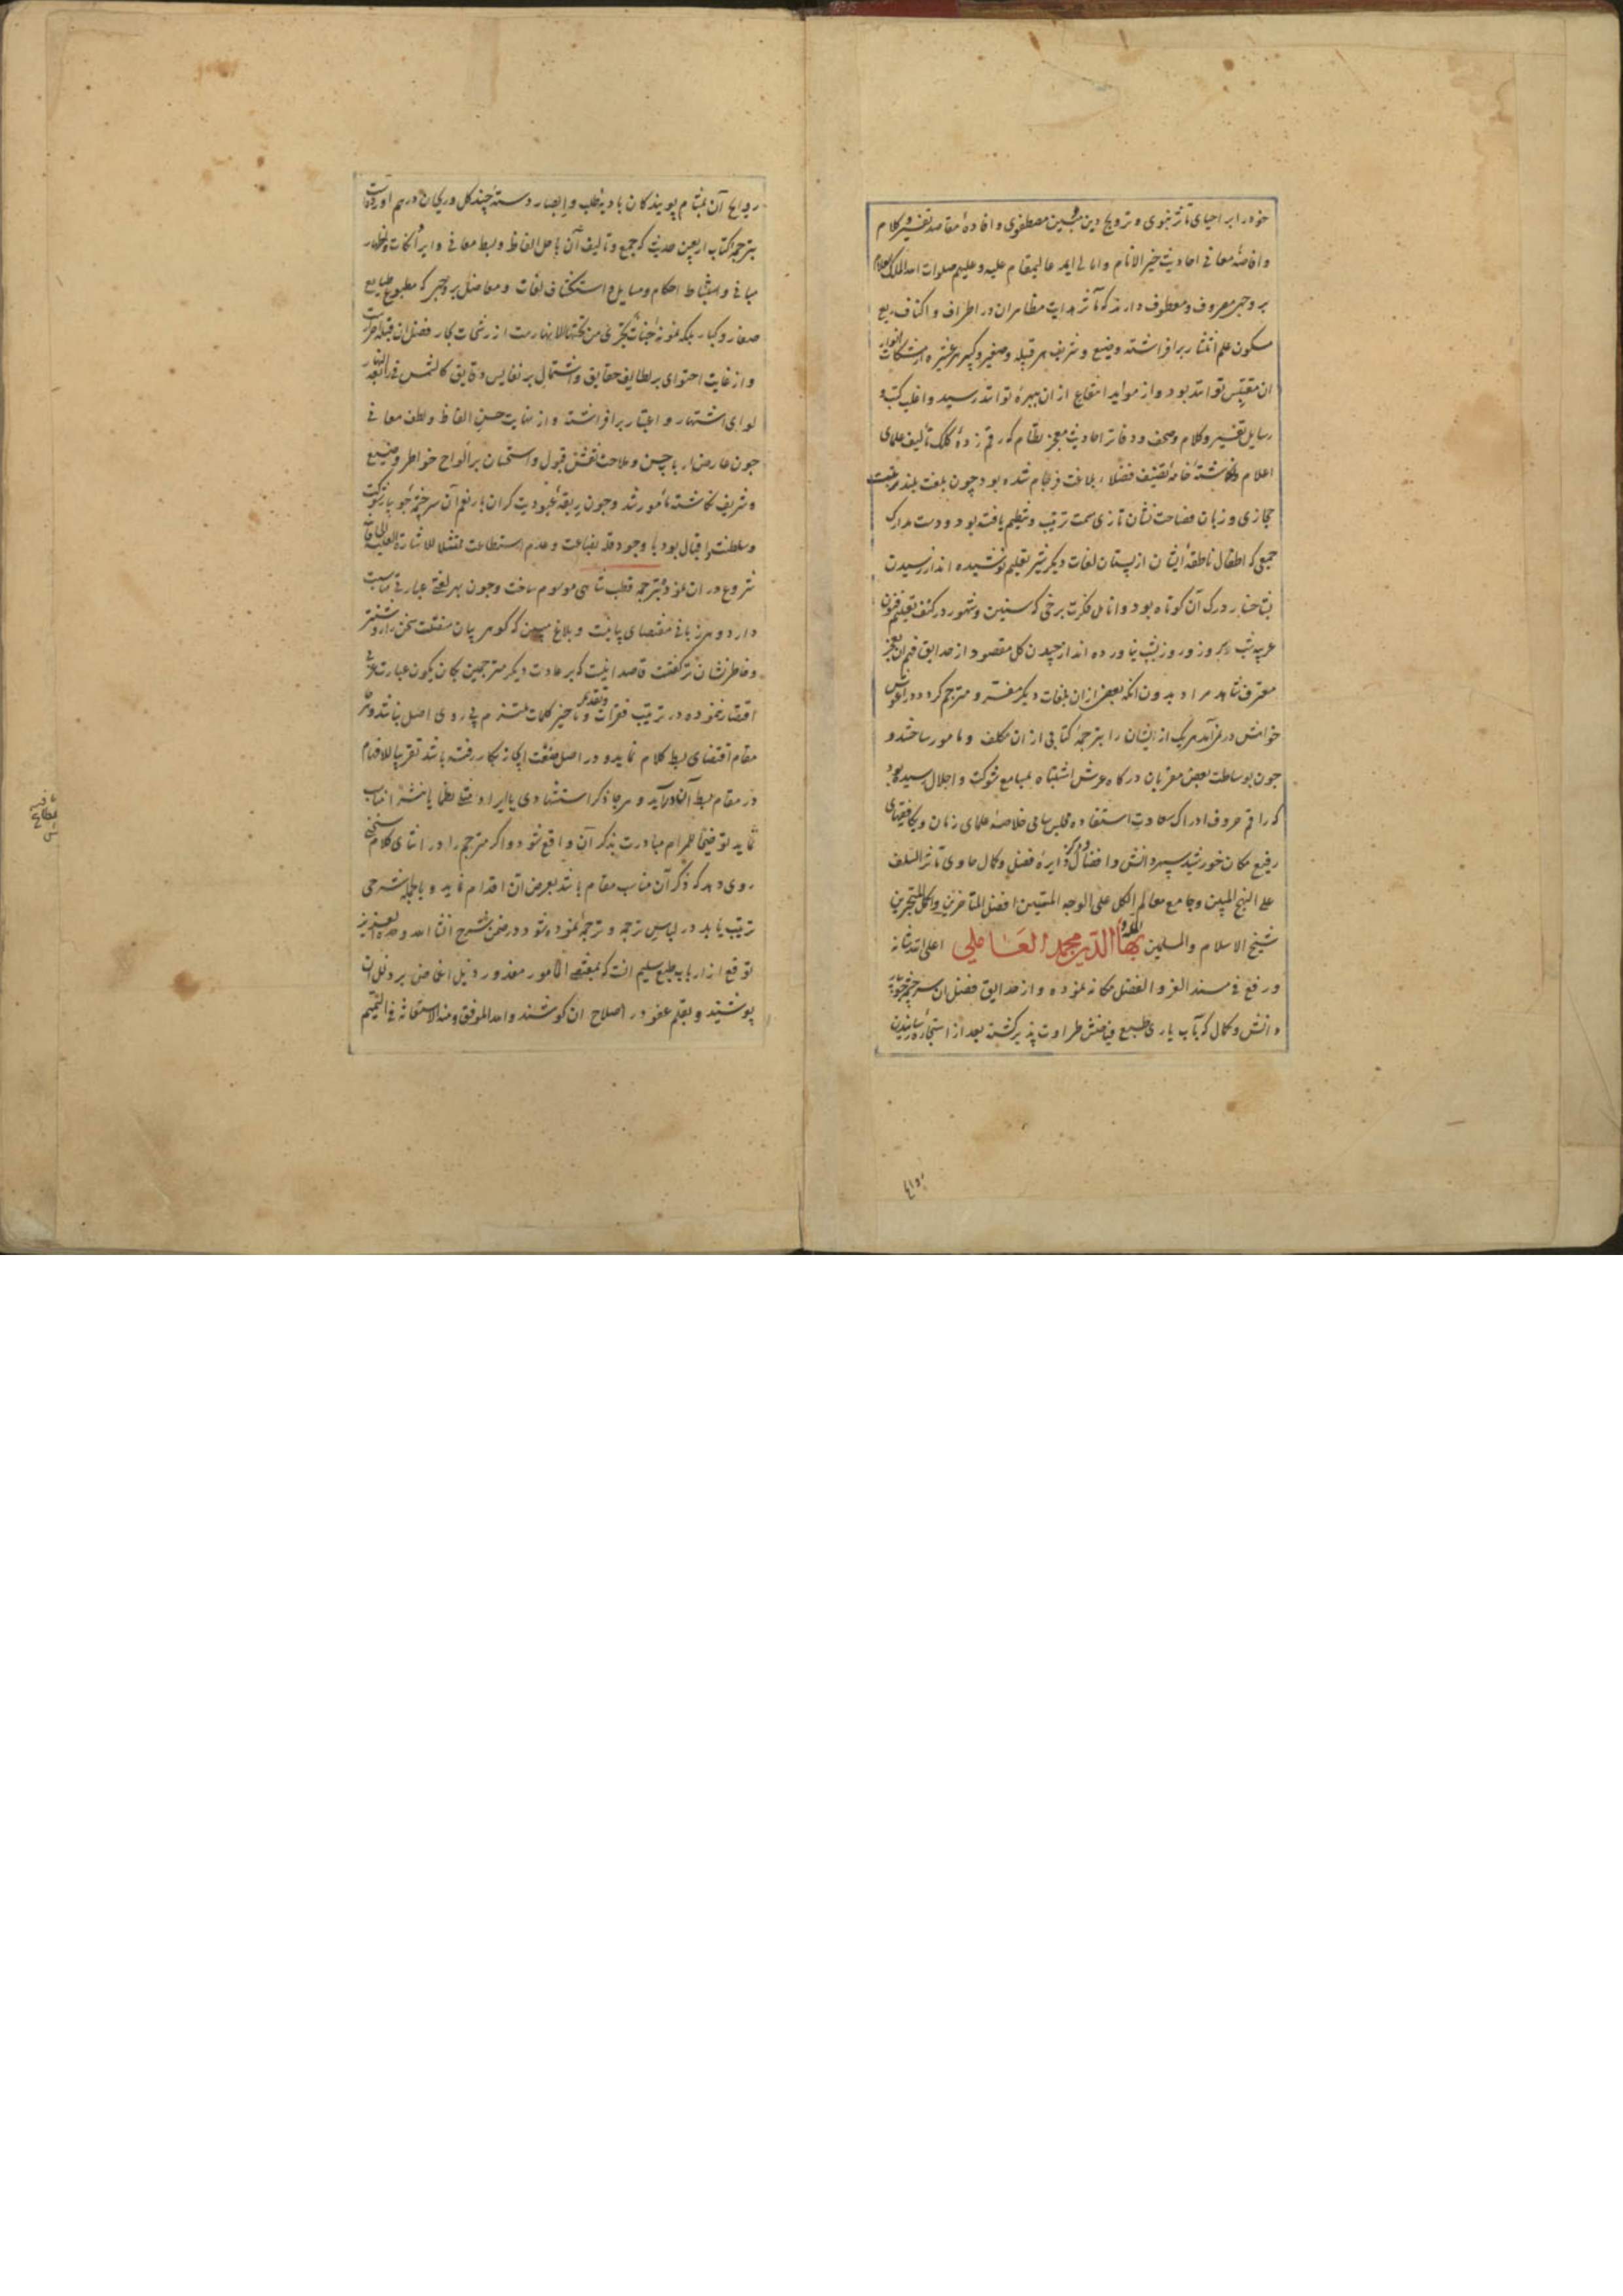 خود را بر احیای مآثر نبوی و ترویج دین مبین مصطفوی و افادهٔ مقاصد تفسیر و کلام
و افاضهٔ معانی احادیث خیر الانام و اهالی ایمه عالیمقام علیه و علیهم صلوات الله الملک العلام
بر وجهی مصروف و معطوف دارند که مآثر هدایت مظاهر ان در اطراف و اکناف ربع
مسکون علم انتشار بر افراشته وضیع و شریف هر قبیله و صغیر و کبیر هر عشیره از مشکات انوار
ان مقتبس تواند بود و از مواید انتفاع از ان ببهرهٔ تواند رسید و اغلب کتب و
رسایل تفسیر و کلام و صحف و دفاتر احادیث معجز نظام که رقم زدهٔ کلک تألیف علمای
اعلام و نگاشتهٔ خامهٔ تصنیف فضلاء بلاغت فرجام شده بود چون بلغت بلند مرتبت
حجازی و زبان فصاحت نشان تازی سمت ترتیب و تنظیم یافته بود و دست مدارک
جمعی که اطفال ناطقهٔ ایشان از پستان لغات دیگر شیر تعلیم نوشیده اند از رسیدن
بشاخسار درک آن کوتاه بود و انامل فکرت برخی که سنین و شهور در کنف تعلیم فنون
عربیه شب بروز و روز بشب نیاورده اند از چیدن کل مقصود از حدایق فهم ان بعجز
معترف شاهد مراد بدون انکه بعضی از ان بلغات دیگر مفسر و مترجم کردد در اغوش
خواهش در نمی آمد هر یک از ایشان را بترجمهٔ کتابی از ان مکلف و مامور ساختند و
چون بوساطت بعض مقربان درگاه عرش اشتباه بمسامع شوکت و اجلال رسیده بود
که راقم حروف ادراک سعادت استفاده مجلس سامی خلاصهٔ علمای زمان و نقاوهٔ فقهای
رفیع مکان خورشید سپهر دانش و افضال و مرکز دایرهٔ فضل و کمال حاوی مآثر السلف
علی النهج المبین و جامع معالم الکل علی الوجه المتین افضل المتاخرین و اکمل المتبحرین
شیخ الاسلام و المسلمین بهاء الملة و الدین محمد العاملی اعلی الله شانه
و رفع فی مسند العز و الفضل مکانه نموده و از حدایق فضل ان سرچشمه جویبار
دانش و کمال که بآب یاری طبع فیاضش طراوت پذیر گشته بعد از استجازه رسانیدن
روایح
روایح آن بمشام پویندکان بادیه طلب و ابصار دسته چند کل و ریحان در هم آورده است
بترجمه کتاب اربعین حدیث که جمع و تالیف آن با حل الفاظ و بسط معانی و ایراد نکات و اظهار
مبانی و استنباط احکام و مسایل و استکشاف لغات و معاضل بر وجهی که مطبوع طبایع
صغار و کبار بلکه نمونهٔ جنات تجری من تحتها الانهار است از رشحات بحار فضل ان قبله احرار است
و از غایت احتوای بر لطایف حقایق و اشتمال بر نفایس دقایق کالشمس فی رابعة النهار
لوای اشتهار و اعتبار بر افراشته و از نهایت حسن الفاظ و لطف معانی
چون عارض یار با حسن و ملاحت نقش قبول و استحسان بر الواح خواطر وضیع
و شریف نگاشته مأمور شد و چون ربقهٔ عبودیت گران بار نعم آن سرچشمه جویبار شوکت
و سلطنت و اقبال بود با وجود قلة بضاعت و عدم استطاعت ممتثلا للاشارة العلیة العالیة
شروع در ان نمود و بترجمه قطب شاهی موسوم ساخت و چون هر لغتی عبارتی مناسب
دارد و هر زبانی مقتضای بیانیست و بلاغ مبین که کوهر بیان مفتت سخن را روشنتر
و خاطر نشان تر گفتست قاصد اینست که بر عادت دیگر مترجمین بکان یکون عبارت عربی
اقتصار ننموده در ترتیب فقرات و تقدیم و تاخیر کلمات ملتزم پی روی اصل نباشد و هر
مقام اقتضای بسط کلام نماید و در اصل صنعت ایجاز بکار رفته باشد تقریبا للافهام
در مقام بسط آن در آید و هر جا ذکر استشهادی یا ایراد مثلی نظما یا نثرا مناسب
نماید توضیحا للمرام مبادرت بذکر آن واقع شود و اگر مترجم را در اثنای کلام سخنی
روی دهد که ذکر آن مناسب مقام باشد بعرض ان اقدام نماید و بالجمله شرحی
ترتیب یابد در لباس ترجمه و ترجمهٔ نموده شود در ضمن شرح انشا الله وحده العزیز
توقع از ارباب طبع سلیم انست که بمقتضی المامور معذور ذیل اغماض بر ذلل ان
پوشند و بقلم عفو در اصلاح ان کوشند و الله الموفق و منه الاستعانة فی التتمیم